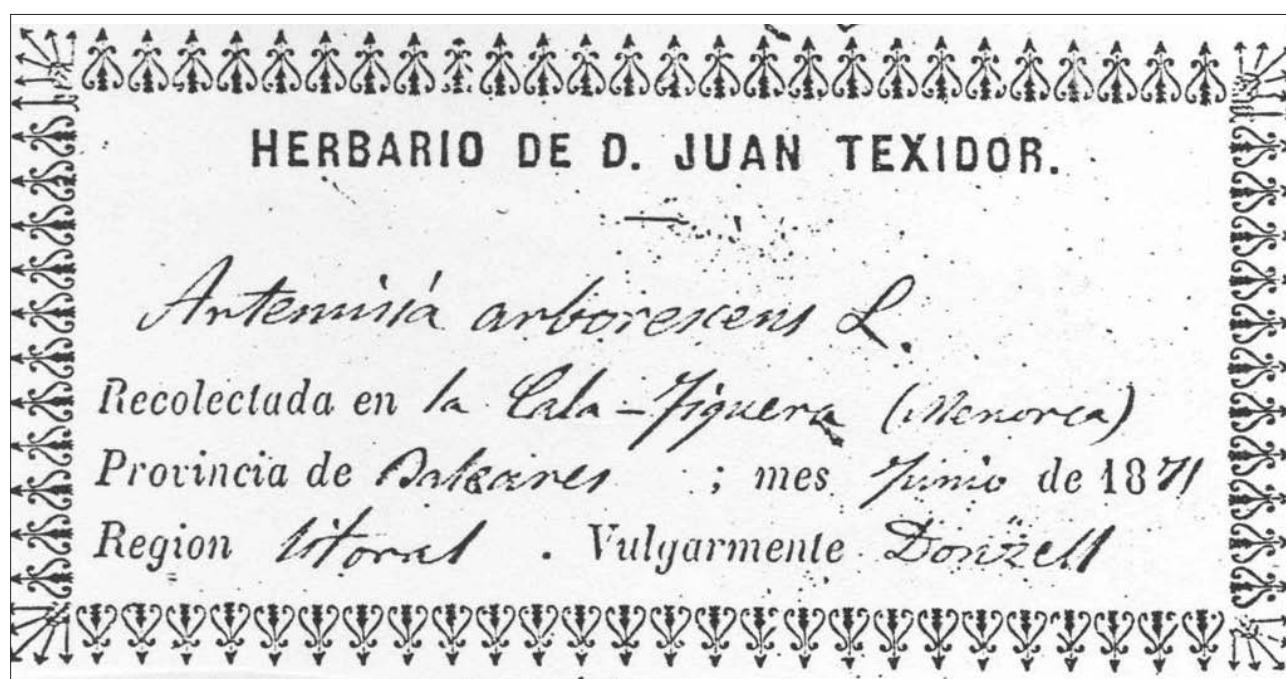 HERBARIO DE D. JUAN TEXIDOR.
Artemisia arborescens L.
Recolectada en la Cala-Figuera (Menorca)
Provincia de Baleares ; mes Junio de 1871
Region litoral . Vulgarmente Donzell